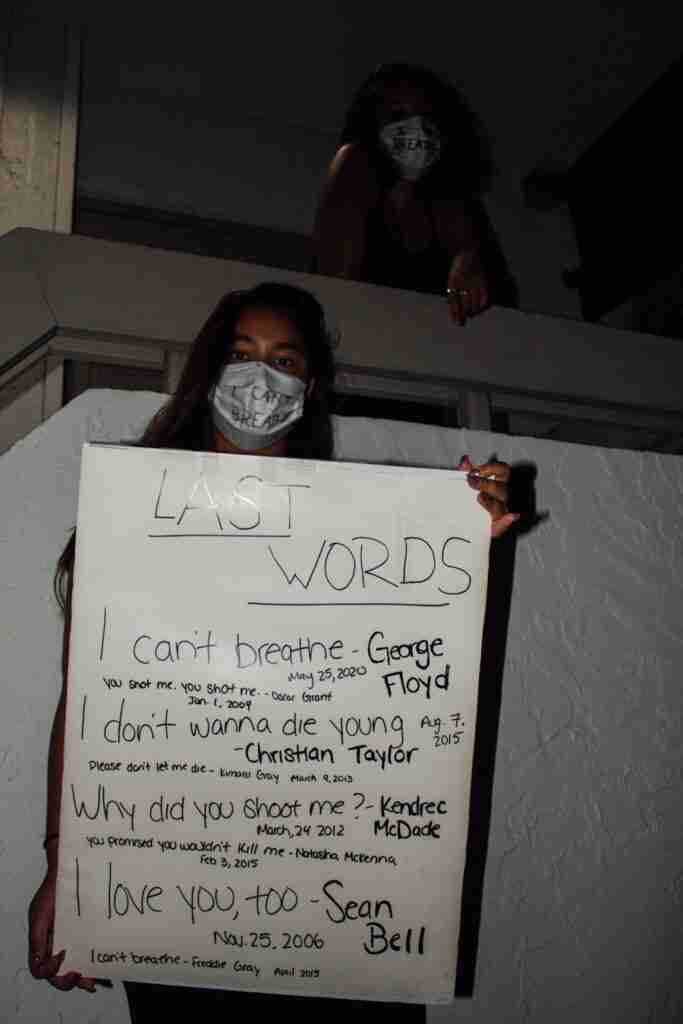 BREATH
I CAN'T
BREATH
LAST
WORDS
I can't breathe - George
Floyd
May 25, 2020
you shot me. you shot me. - Oscar Grant
Jan. 1, 2009
I don't wanna die young
Aug. 7,
2015
- Christian Taylor
Please don't let me die - Kimani Gray March 9, 2013
Why did you shoot me? - Kendrec
McDade
March, 24 2012
you promised you wouldn't kill me - Natasha McKenna
Feb 3, 2015
I love you, too - Sean
Bell
Nov. 25, 2006
I can't breathe - Freddie Gray April 2015